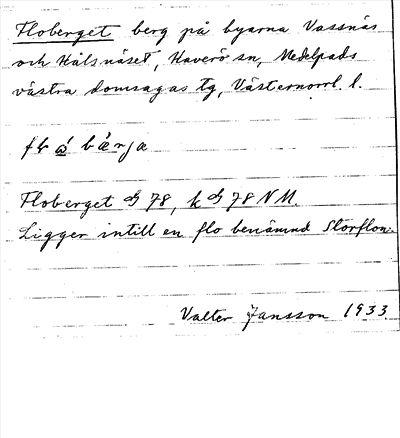 Floberget berg på byarna Vassnäs
och Kålsnäset, Haverö sn, Medelpads
västra domsagas tg, Västernorrl. l.
Floberget 78, k 78 NM.
Ligger intill en flo benämnd Storflon.
Valter Jansson 1933